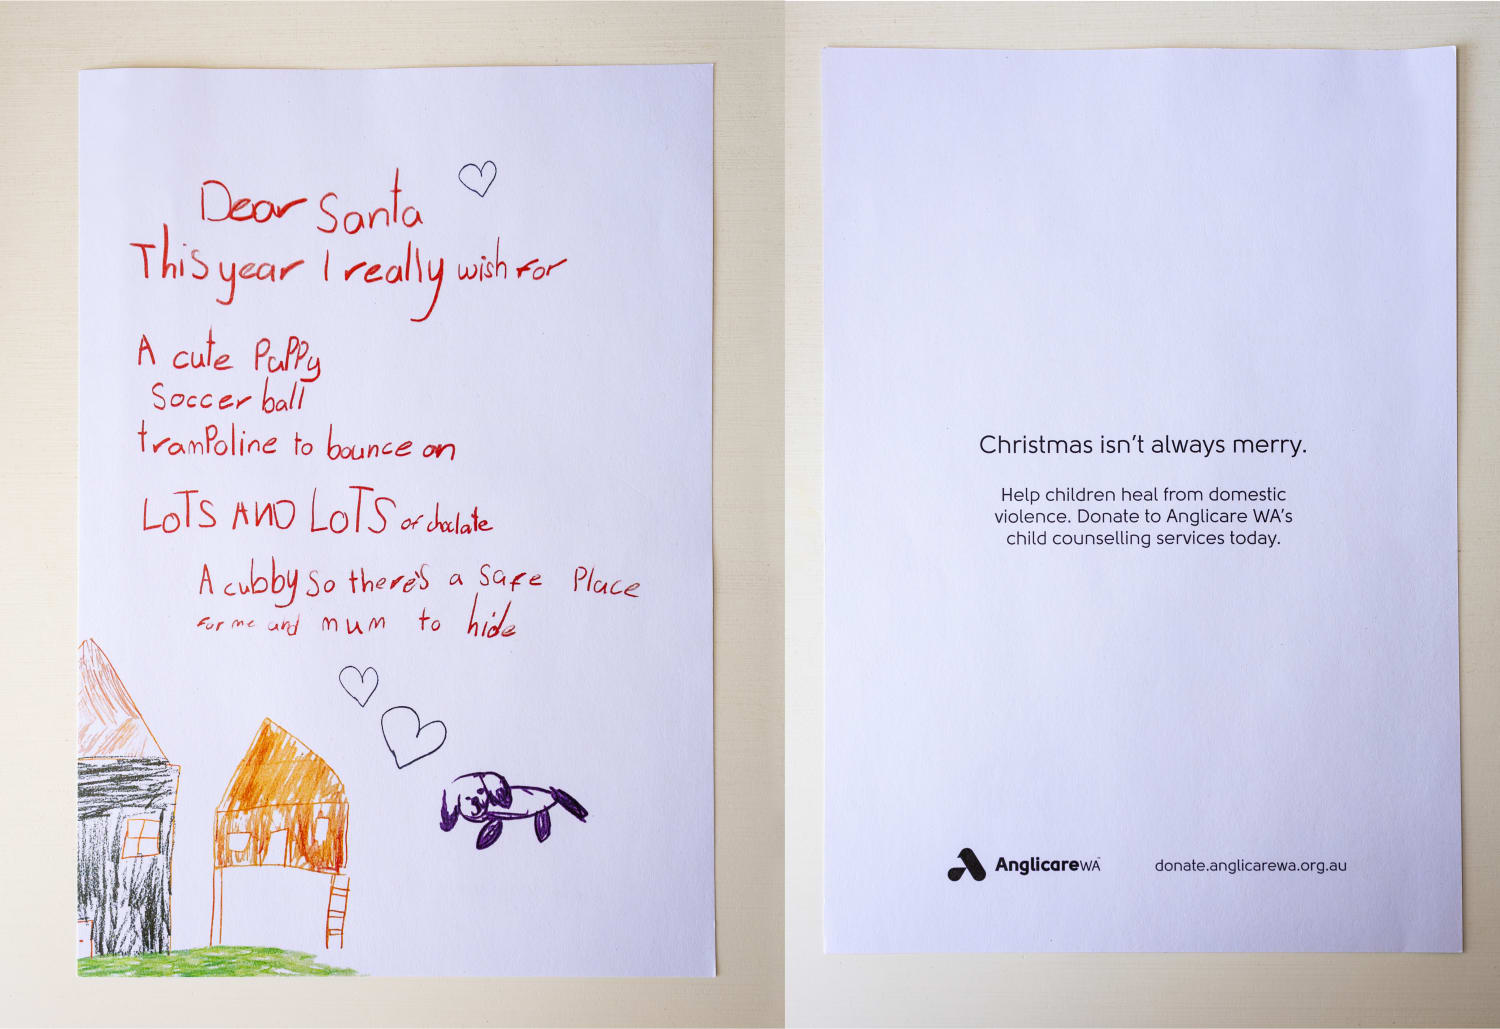 Dear Santa
This year I really wish for
A cute Puppy
Soccer ball
tramPoline to bounce on
LOTS AND LOTS of choclate
A cubby so there's a safe Place
for me and mum to hide
Christmas isn't always merry.
Help children heal from domestic
violence. Donate to Anglicare WA's
child counselling services today.
Anglicare WA™
donate.anglicarewa.org.au